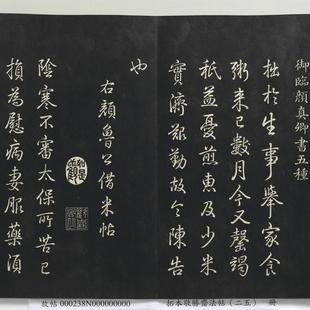 御臨顏真卿書五種
拙於生事舉家食
粥来已數月今又罄竭
秖益憂煎恵及少米
實濟艱勤故令陳告
也
右顏魯公借米帖
陰寒不審太保所苦已
損為慰病妻服藥須
故帖 000238N000000000 拓本敬勝齋法帖(二五) 冊